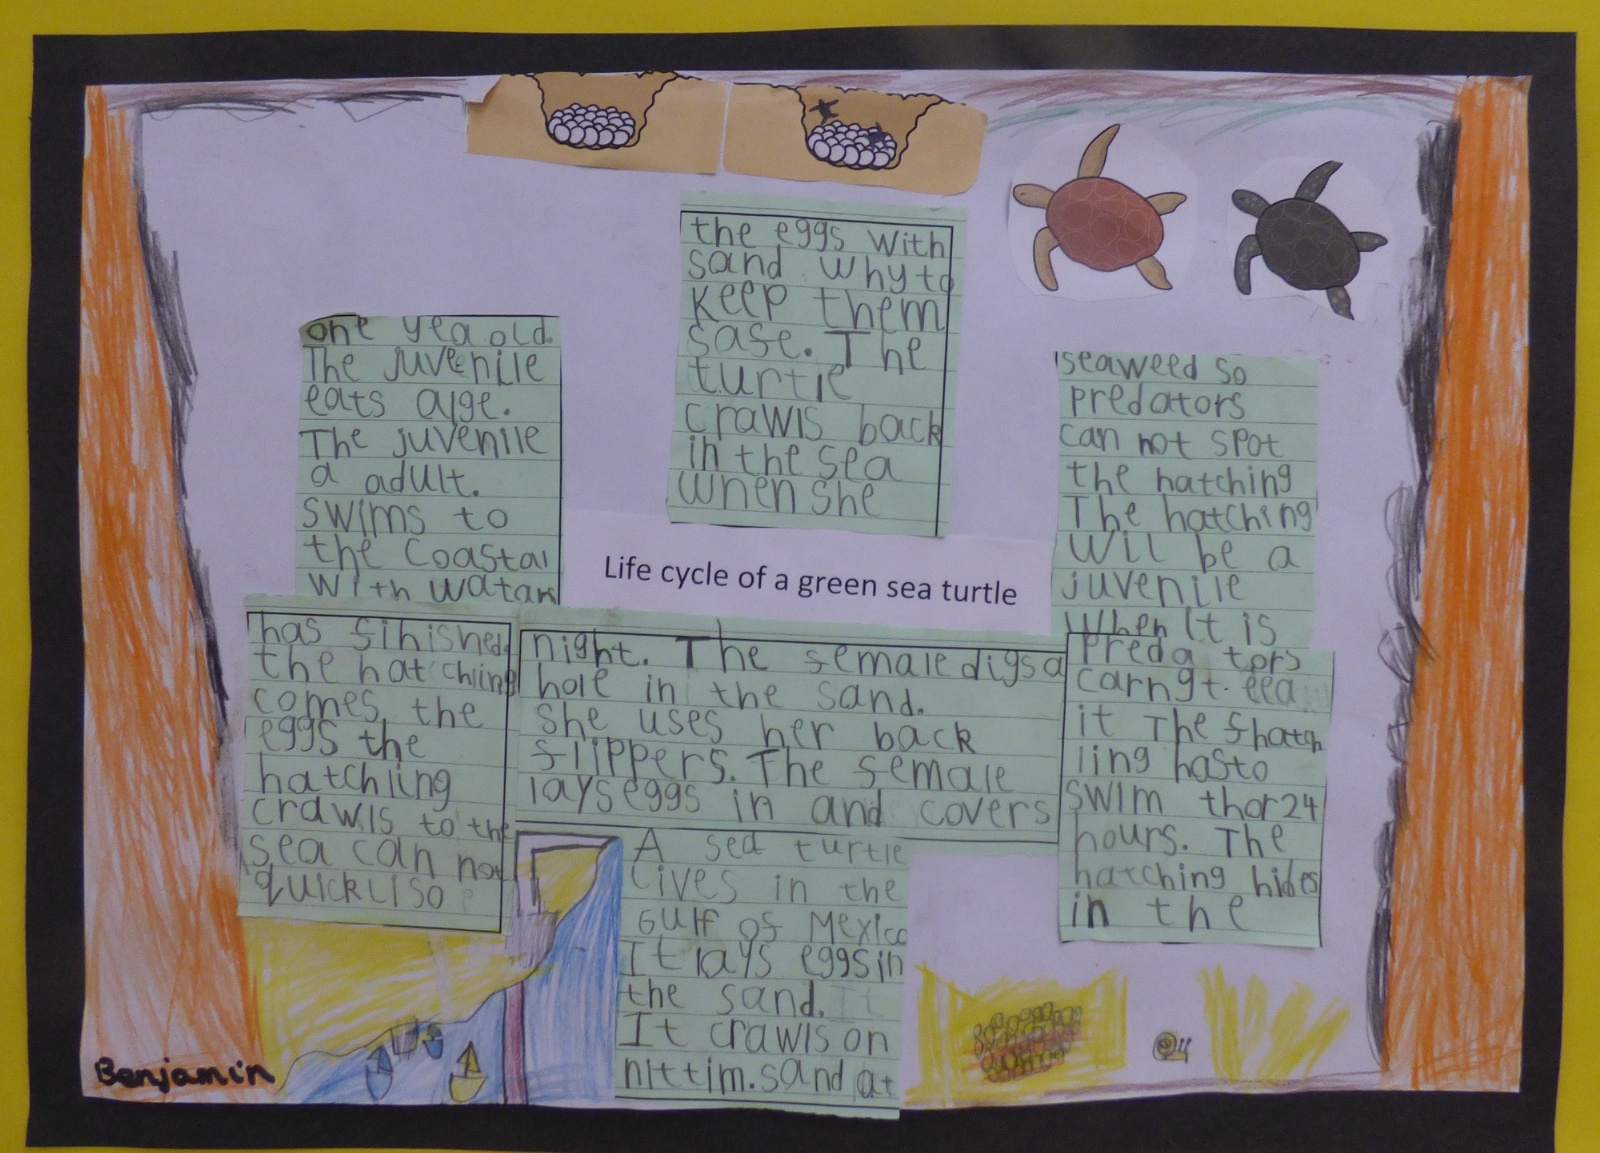 Life cycle of a green sea turtle
A sea turtle
Lives in the
Gulf of Mexico
It lays eggs in
the sand. It
It crawls on
nittim. sand at
night. The female digs a
hole in the sand.
She uses her back
flippers. The female
lays eggs in and covers
the eggs with
sand why to
keep them
safe. The
turtle
crawls back
in the sea
when she
has finished
the hatchling
comes the
eggs the
hatchling
crawls to the
sea can not
quickli so
predators
it The fhatch
ling hasto
swim thor 24
hours. The
hatching hides
in the
seaweed so
predators
can not spot
the hatching
The hatching
wil be a
juvenile
when it is
one yea old.
The juvenile
eats alge.
The juvenile
a adult.
swims to
the coastal
with watars
Benjamin